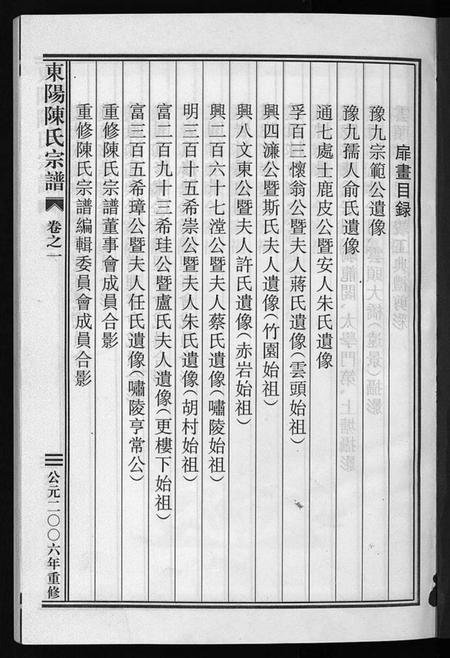 扉畫目録
豫九宗範公遺像
豫九孺人俞氏遺像
通七處士鹿皮公暨安人朱氏遺像
孚百三懷翁公暨夫人蔣氏遺像(雲頭始祖)
興四濂公暨斯氏夫人遺像(竹園始祖)
興八文東公暨夫人許氏遺像(赤岩始祖)
興二百六十七漟公暨夫人蔡氏遺像(嘯陵始祖)
明三百十五希崇公暨夫人朱氏遺像(胡村始祖)
富二百九十三希珪公暨盧氏夫人遺像(更樓下始祖)
富三百五希璋公暨夫人任氏遺像(嘯陵亨常公)
重修陳氏宗譜董事會成員合影
重修陳氏宗譜編輯委員會成員合影
東陽陳氏宗譜
卷之一
公元二〇〇六年重修